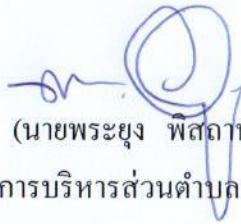 (นายพระยุง พิสถาน
การบริหารส่วนตำบล